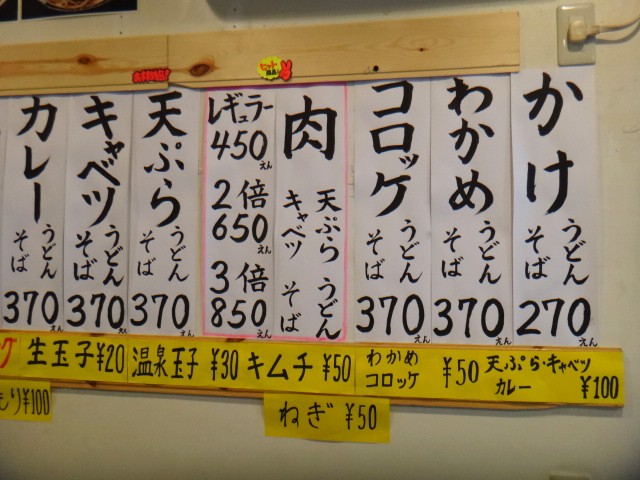 かけ
うどん
そば
270えん
わかめ
うどん
そば
370えん
コロッケ
うどん
そば
370えん
肉
天ぷら うどん
キャベツ そば
レギュラー
450えん
2倍
650えん
3倍
850えん
天ぷら
うどん
そば
370えん
キャベツ
うどん
そば
370えん
カレー
うどん
そば
370えん
生玉子 ¥20
温泉玉子 ¥30
キムチ ¥50
わかめ
コロッケ ¥50
天ぷら・キャベツ
カレー ¥100
ねぎ ¥50
¥100